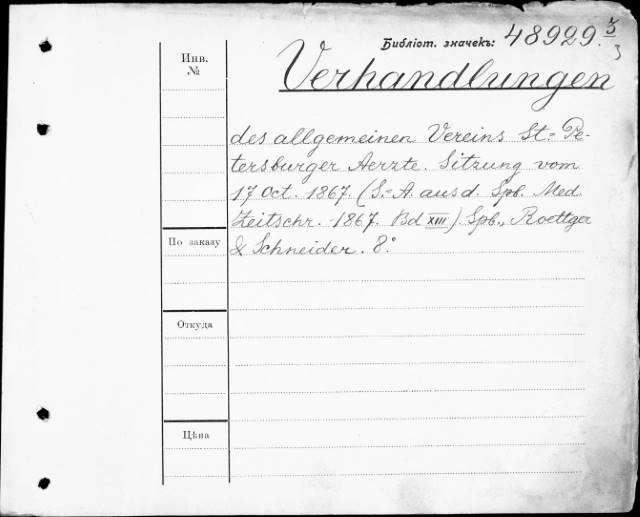 Библіот. значекъ: 48929. 5/3
Инв.
№
Verhandlungen
des allgemeinen Vereins St.= Pe-
tersburger Aerzte. Sitzung vom
17 Oct. 1867. (S.=A. aus d. Spb. Med.
Zeitschr. 1867. Bd XIII). Spb., Roettger
& Schneider. 8°.
По заказу
Откуда
Цѣна